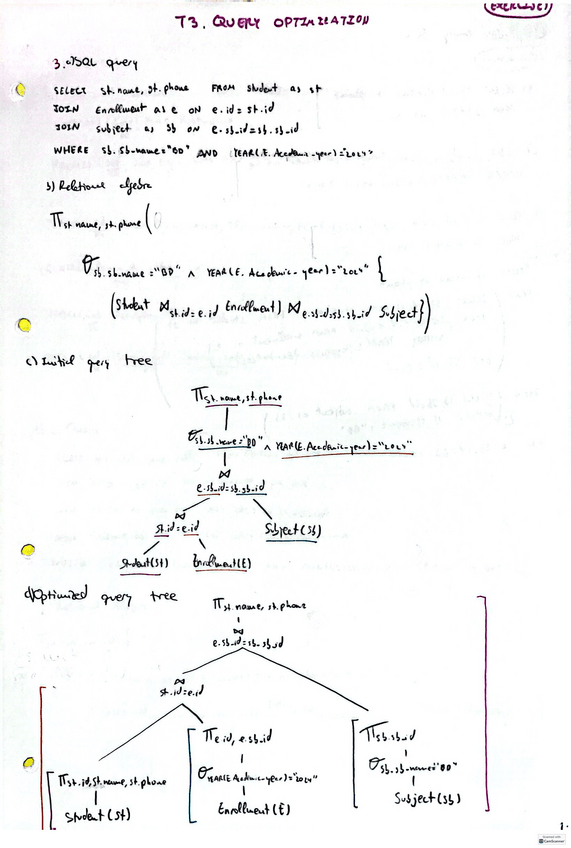 (EXERCISES)
T3. QUERY OPTIMIZATION
3.a) SQL query
SELECT st.name, st.phone FROM student as st
JOIN Enrollment as e ON e.id = st.id
JOIN subject as sb ON e.sb_id = sb.sb_id
WHERE sb.sb-name = "BD" AND (YEAR(E.Academic-year) = "2024"
b) Relational algebra
π st.name, st.phone (
σ sb.sb.name = "BD" ∧ YEAR(E.Academic-year) = "2024" {
(Student ⋈ st.id = e.id Enrollment) ⋈ e.sb_id = sb.sb_id Subject})
c) Initial query tree
π st.name, st.phone
σ sb.sb.name = "BD" ∧ YEAR(E.Academic-year) = "2024"
⋈
e.sb_id = sb.sb_id
⋈
st.id = e.id
Subject (sb)
Student(St)
Enrollment(E)
d) Optimized query tree
π st.name, st.phone
⋈
e.sb_id = sb-sb_id
⋈
st.id = e.id
π e.id, e.sb_id
π sb.sb_id
σ YEAR(E.Academic-year) = "2024"
σ sb.sb-name = "BD"
π st.id, st.name, st.phone
Enrollment (E)
Subject (sb)
Student (St)
1.
CamScanner